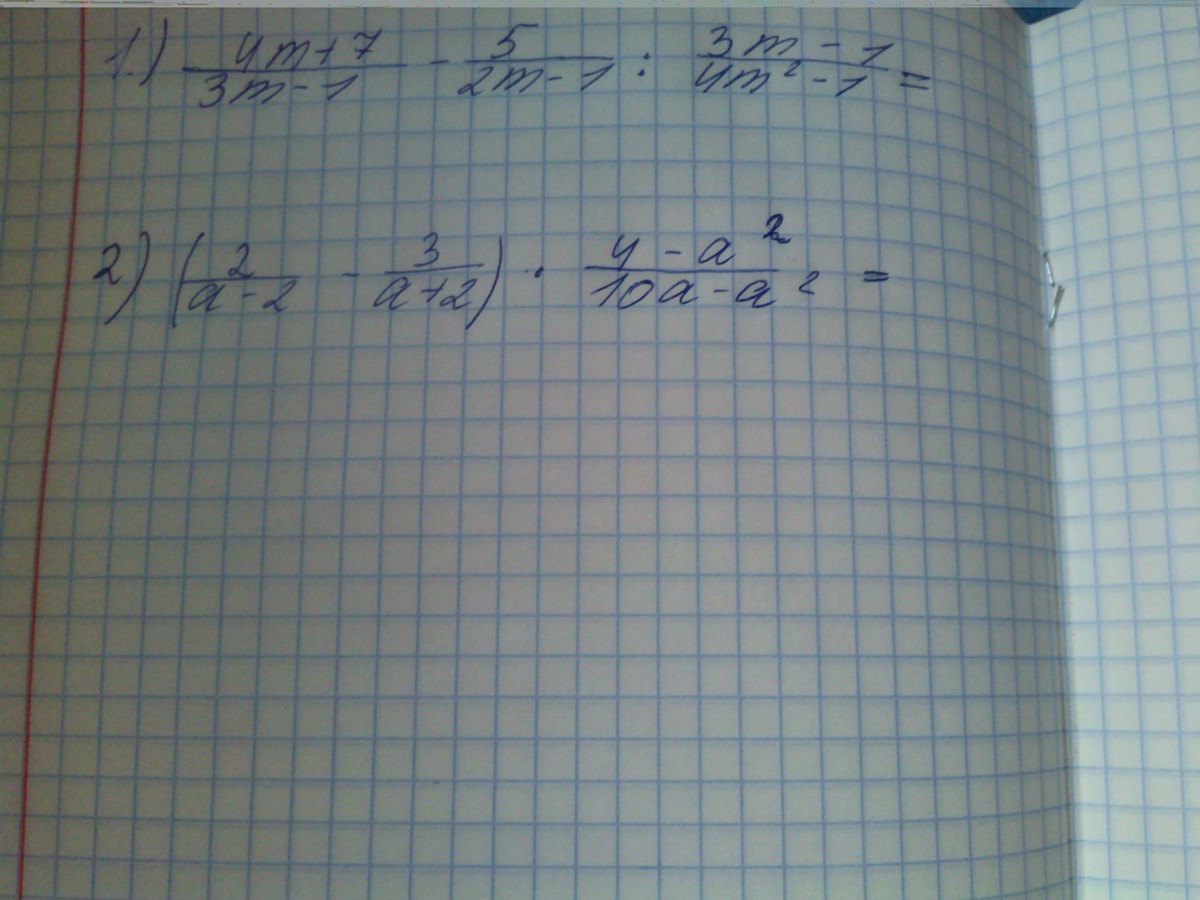 1.) \frac{4m+7}{3m-1} - \frac{5}{2m-1} : \frac{3m-1}{4m^2-1} =
2) (\frac{2}{a-2} - \frac{3}{a+2}) · \frac{4-a^2}{10a-a^2} =